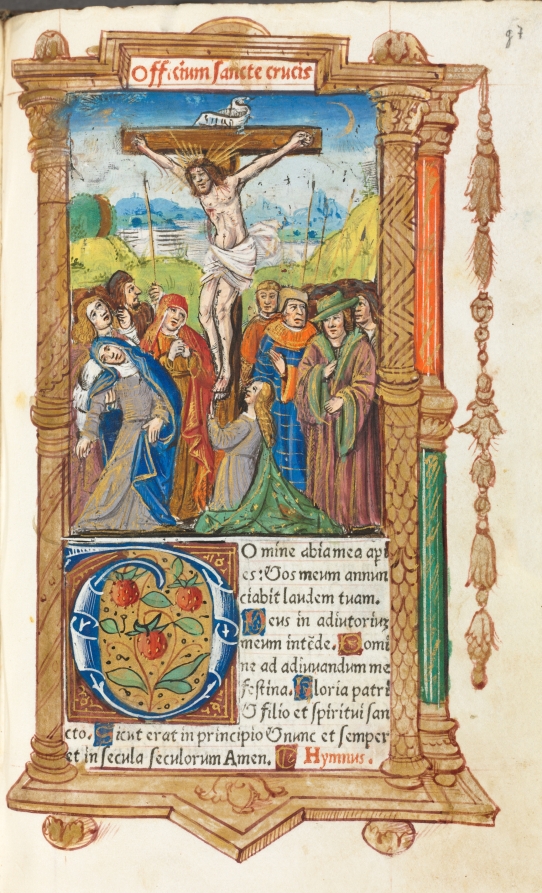 Officium sancte crucis
O mine abia mea api
es: & os meum annun
ciabit laudem tuam.
Deus in adiutoriuz
meum intēde. Domi
ne ad adiuuandum me
festina. Gloria patri
& filio et spiritui san
cto. Sicut erat in principio & nunc et semper
et in secula seculorum Amen. Hymnus.